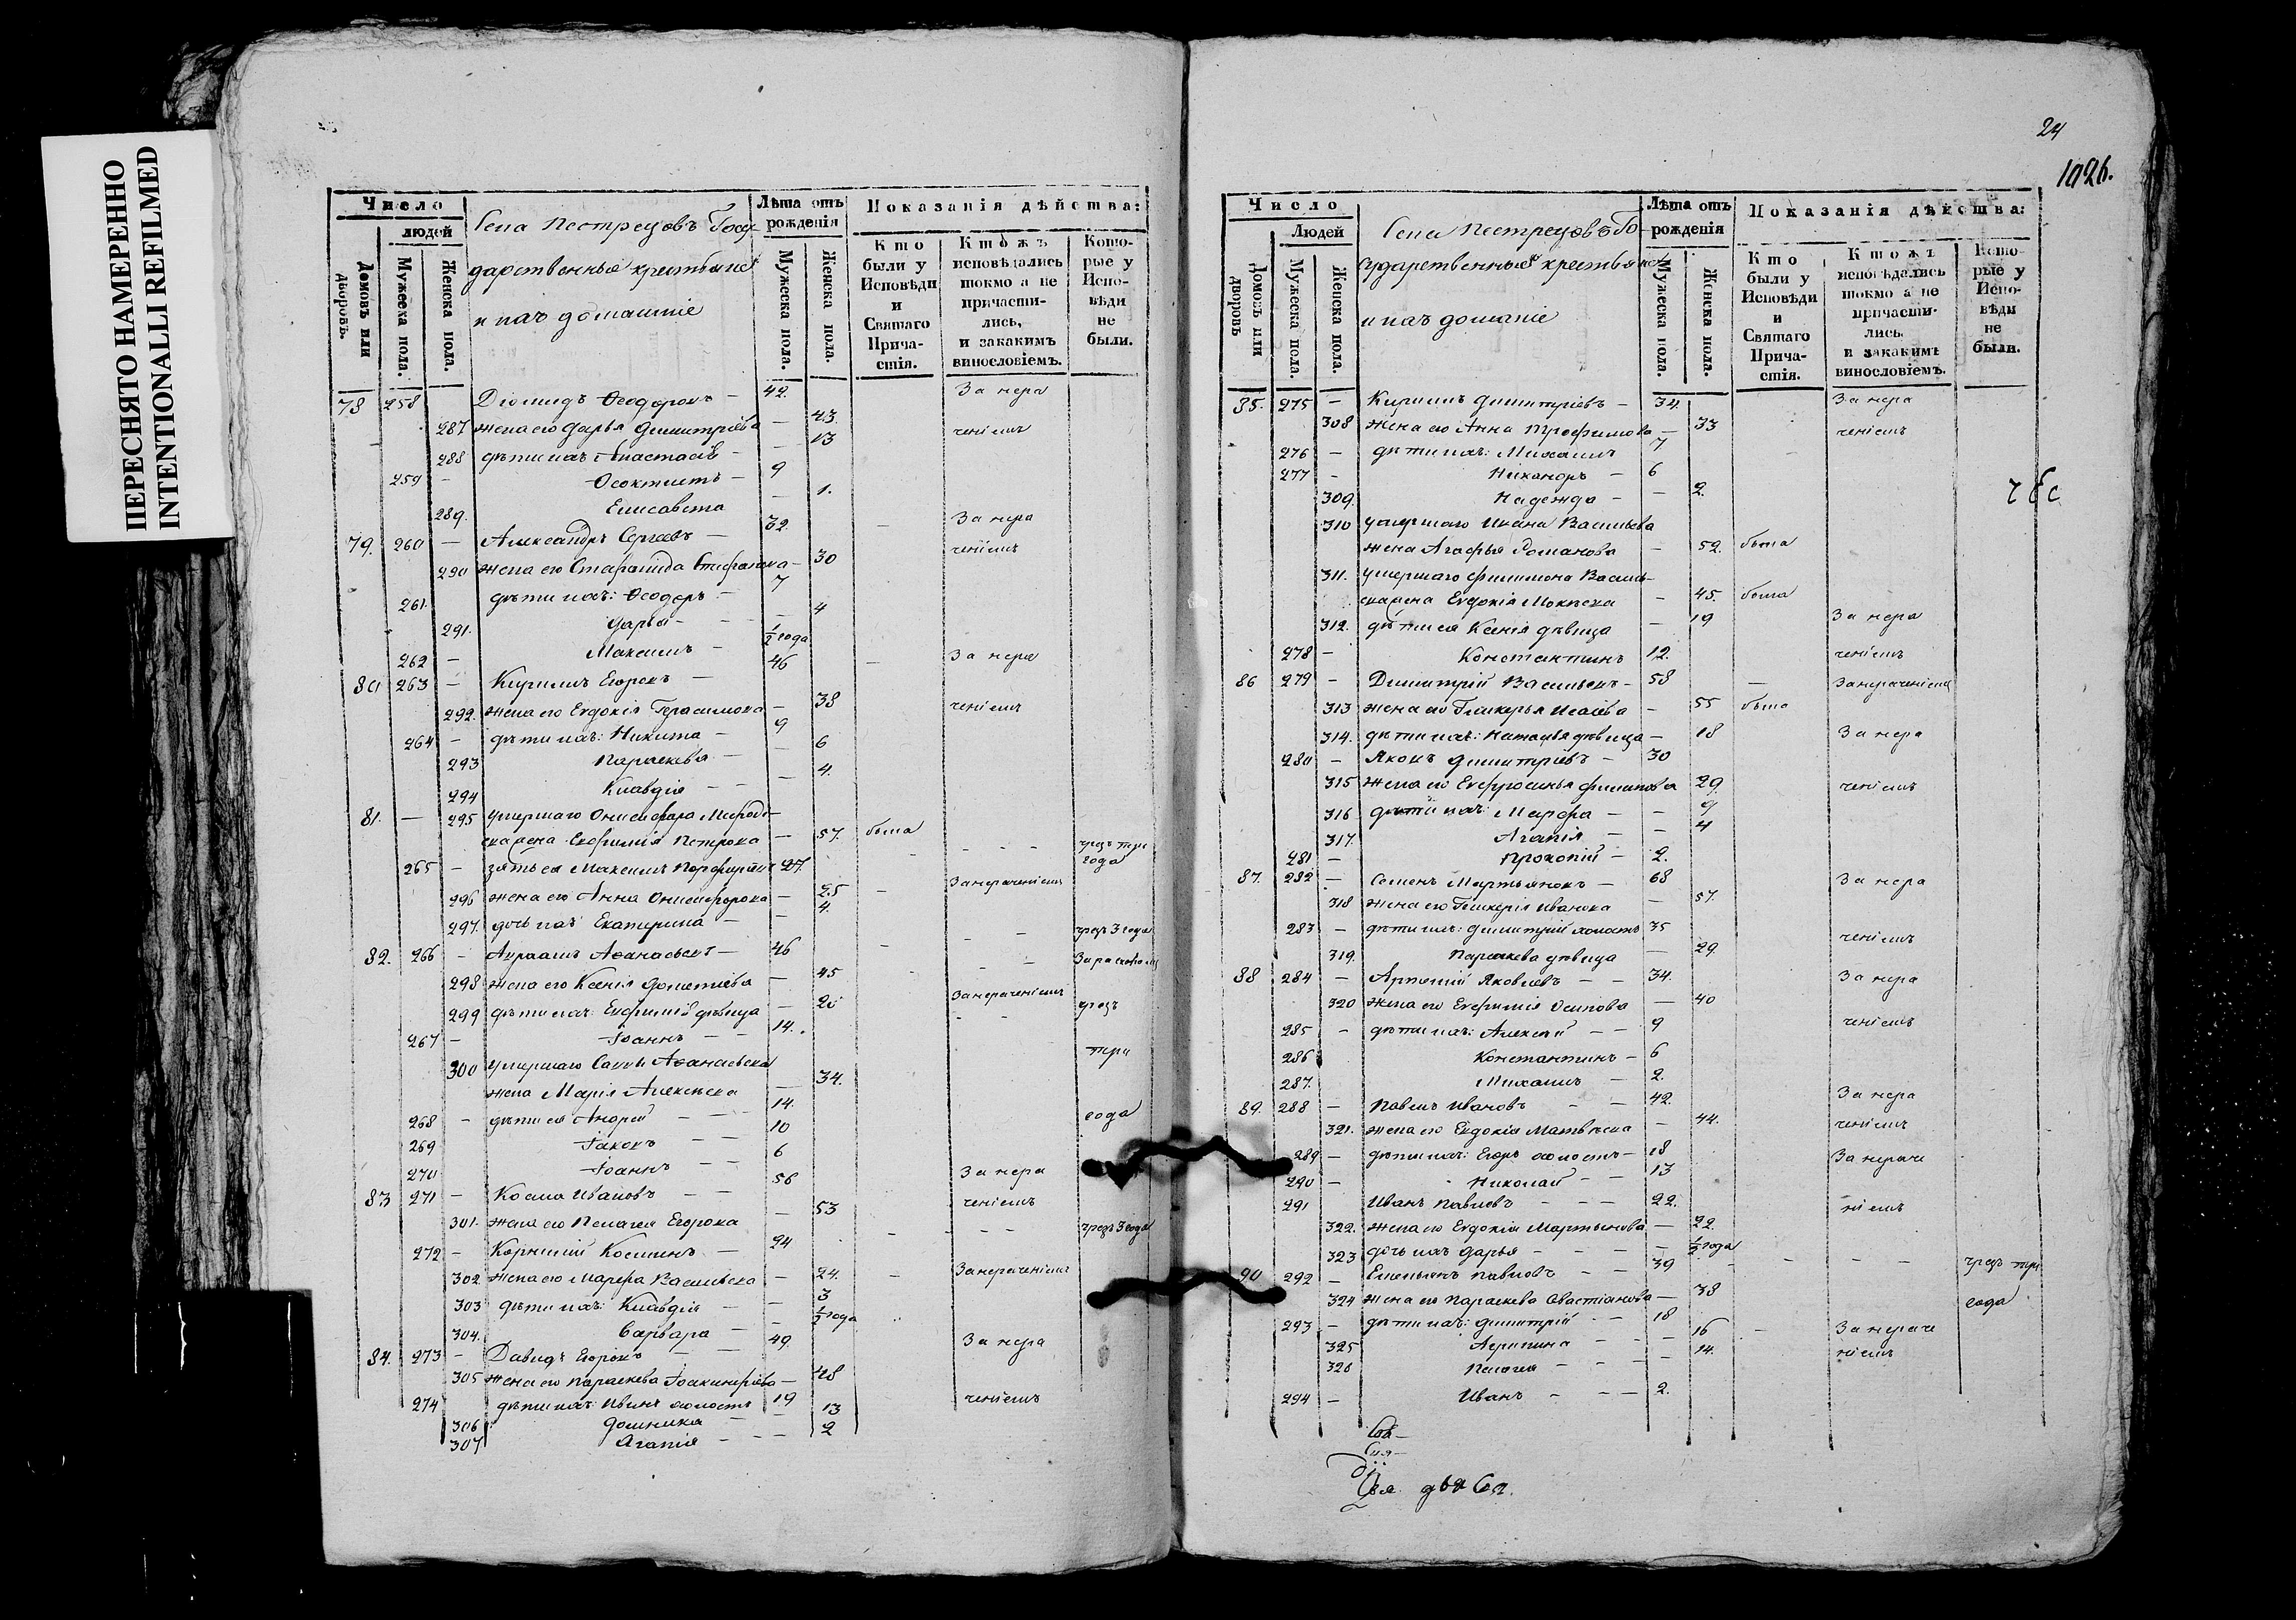 ПЕРЕСНЯТО НАМЕРЕННО
INTENTIONALLI REFILMED
Число
людей
Домовъ или дворовъ.
Мужеска пола.
Женска пола.
Села Пестрецовъ Госу-
дарственныя крестьяне
и ихъ домашніе
Лѣта отъ рожденія
Мужеска пола.
Женска пола.
Показанія дѣйства:
Кто были у Исповѣди и Святаго Прича-стія.
Ктожъ исповѣдались токмо а не причасти-лись, и закакимъ винословіемъ.
Кото-рые у Испо-вѣди не были.
78 258 Діомидъ Ѳеодоровъ - 42. За нера
287 жена его Дарья Димитріева - 43. ченіемъ
288 дѣти ихъ Анастасія - - 13
259 - Ѳеоктистъ - 9
289. Елисавета - 1.
79. 260 - Александръ Сергеевъ - 32. - За нера
290 жена его Стафанида Стефанова - 30 ченіемъ
261. дѣти ихъ: Ѳеодоръ - 7
291. Дарья - - 4
262 - Максимъ - 1/2 года
80 263 - Кирилъ Егоровъ - 46 - За нера
292. жена его Евдокія Герасимова - 38 ченіемъ
264 - дѣти ихъ: Никита - 9
293 Параскева - - 6
294 Клавдія - - - 4.
81. - 295 умершаго Онисифора Мефоді-
ева жена Евфимія Петрова - 57. была
265 - зять ея Максимъ Порфирьевъ 27. - - - чрезъ три года
296 жена его Анна Онисифорова - 25 - За нераченіемъ
297. дочь ихъ Екатерина - - 4.
82. 266 - Авраамъ Аѳанасьевъ - 46 - - - чрезъ 3 года
298 жена его Ксенія Дометіева - 45 - - - За расколомъ
299 дѣти ихъ: Евфимія дѣвица - 20 За нераченіемъ
267 - Іоаннъ - - 14. - - чрезъ
300 умершаго Саввы Аѳанасьева
жена Марія Алексѣева - 34. три
268 - дѣти ея Андрей - - 14.
269 Іаковъ - - 10 года
270 Іоаннъ - - 6
83 271 - Косма Ивановъ - - 56 За нера
301. жена его Пелагея Егорова - 53 ченіемъ
272 - Корнилій Косминъ - 24 - - - чрезъ 3 года
302 жена его Марфа Васильева - 24. - За нераченіемъ
303 дѣти ихъ: Клавдія - - 3
304. Варвара - - 1/2 года
84. 273 - Давидъ Егоровъ - - 49. За нера
305 жена его Параскева Іоакинфіева - 48
274 дѣти ихъ: Иванъ холостъ 19 ченіемъ
306 Домника - - 13
307 Агапія - - - 2
24
1026.
Число
Людей
Домовъ или дворовъ
Мужеска пола.
Женска пола.
Села Пестрецовъ Го-
сударственныя крестьяне
и ихъ домашніе
Лѣта отъ рожденія
Мужеска пола.
Женска пола.
Показанія дѣйства:
Кто были у Исповѣди и Святаго Прича-стія.
Ктожъ исповѣдались токмо а не причасти-лись. и закакимъ винословіемъ.
Кото-рые у Испо-вѣди не были.
85. 275 - Кирилъ Димитріевъ - 34. За нера
308 жена его Анна Трофимова - 33 ченіемъ
276 - дѣти ихъ: Михаилъ 7
277 - Никаноръ - 6
309. Надежда - - 2.
310 умершаго Ивана Васильева
жена Агафья Романова - 52. была
311. умершаго Филимона Василь-
ева жена Евдокія Мокѣева - 45. была
312. дѣти ея Ксенія дѣвица - 19 За нера
278 - Константинъ 12. ченіемъ
86 279 - Димитрій Васильевъ - 58 - За нераченіемъ
313 жена его Гликерья Исаева - 55 была
314. дѣти ихъ: Наталья дѣвица - 18 За нера
280 - Яковъ Димитріевъ - 30
315 жена его Евфросинья Филипова 29. ченіемъ
316 дѣти ихъ: Марфа - - 9
317. Агапія - - 4
281 - Прокопій - 2.
87. 282 - Семенъ Мартьяновъ - 68 За нера
318 жена его Гликерія Иванова - 57.
283 - дѣти ихъ: Димитрій холостъ 35 ченіемъ
319. Параскева дѣвица - 29.
88 284 - Артемій Яковлевъ - - 34. За нера
320 жена его Евфимія Осипова - 40
285 - дѣти ихъ: Алексѣй - - 9 ченіемъ
286 Константинъ - 6
287. Михаилъ - 2.
89. 288 - Павелъ Ивановъ - - 42. За нера
321. жена его Евдокія Матвѣева - 44. ченіемъ
289 - дѣти ихъ: Егоръ холостъ - 18 За нераче
290 - Николай - - 13
291 Иванъ Павловъ - - - 22. ніемъ
322. жена его Евдокія Мартынова - 22.
323 дочь ихъ Дарья - - - 1/2 года
90 292 - Емельянъ Павловъ - - 39 - - - чрезъ три
324 жена его Параскева Савастіанова - 38 года
293 - дѣти ихъ: Димитрій - - 18
325 Агрипина - - - 16 - За нераче
326 Пелагея - - - 14. ніемъ
294 - Иванъ - - - 2.